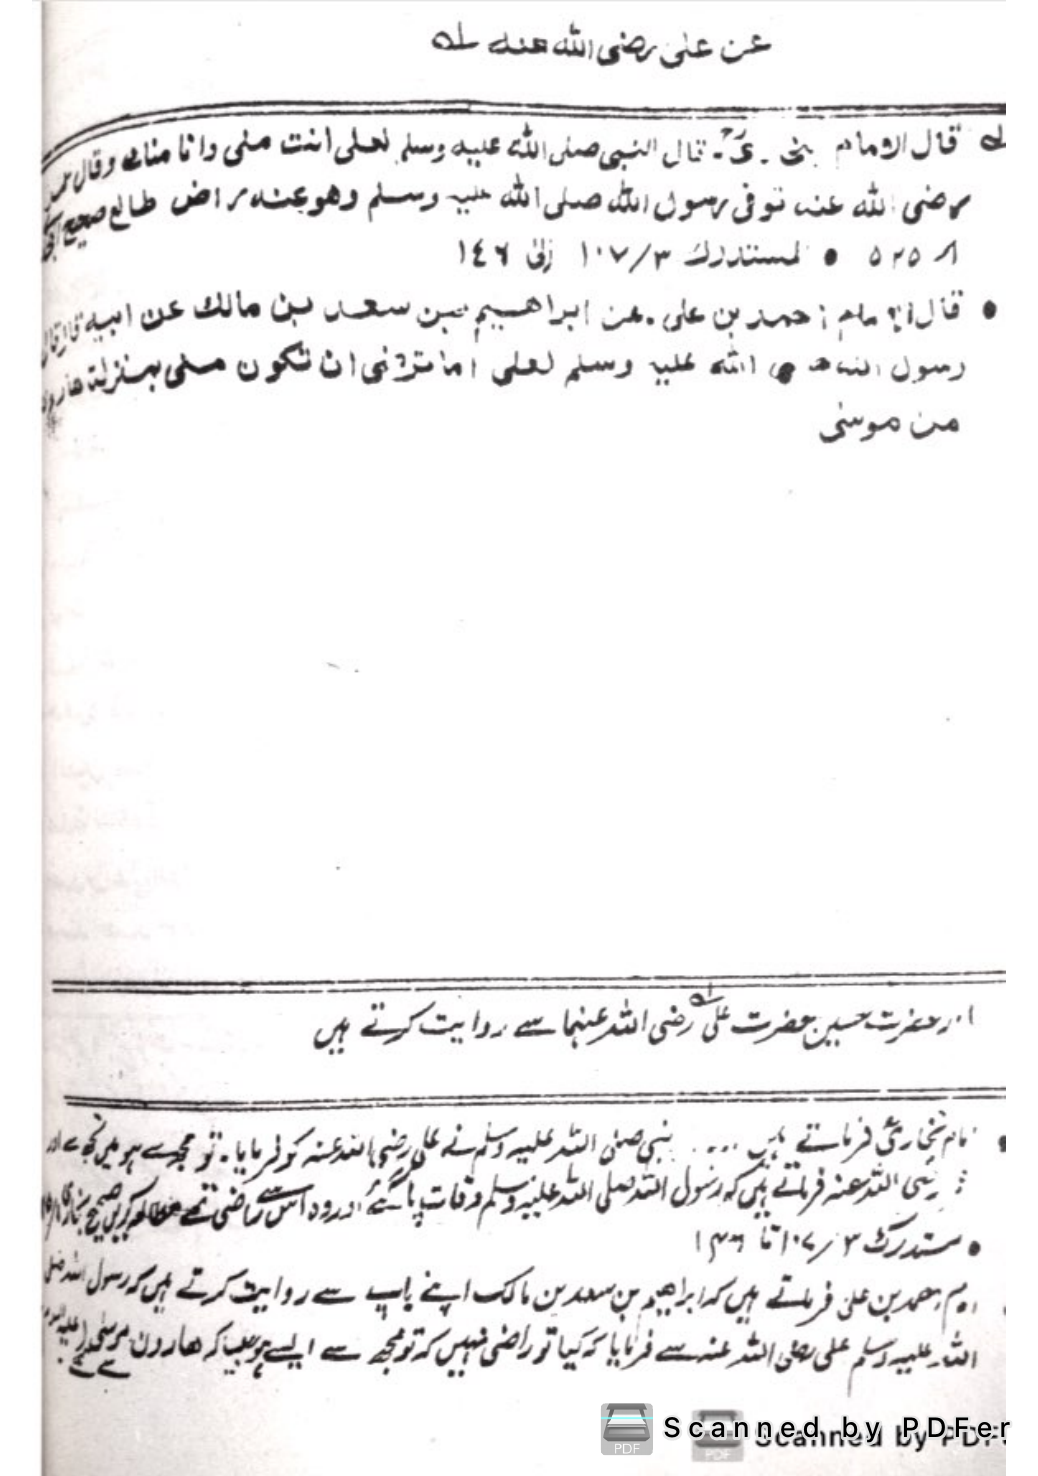 عن علی رضی الله عنه
قال الامام قال النبی صلی الله علیه وسلم لعلی انت منی وانا منك وقال عمر
رضی الله عنه توفی رسول الله صلی الله علیه وسلم وهو عنه راض طالع صحیح
۵۲۵ • المستدرك ۱۰۷/۳ الی ۱٤٦
• قال الامام احمد بن علی . عن ابراهیم بن سعد بن مالك عن ابیه قال قال
رسول الله صلی الله علیه وسلم لعلی اما ترضی ان تکون منی بمنزلة هارون
من موسی
اور حضرت حسین حضرت علی رضی اللہ عنہما سے روایت کرتے ہیں
امام بخاریؒ فرماتے ہیں .... نبی صلی اللہ علیہ وسلم نے علی رضی اللہ عنہ کو فرمایا۔ تو مجھ سے ہو میں تجھ سے اور
رضی اللہ عنہ فرماتے ہیں کہ رسول اللہ صلی اللہ علیہ وسلم وفات پا گئے اور وہ اس سے راضی تھے مطالعہ کریں صحیح بخاری
• مستدرک ۱۰۷/۳ تا ۱۴۶
امام احمد بن علی فرماتے ہیں کہ ابراہیم بن سعد بن مالک اپنے باپ سے روایت کرتے ہیں کہ رسول اللہ صلی
اللہ علیہ وسلم علی رضی اللہ عنہ سے فرمایا کہ کیا تو راضی نہیں کہ تو مجھ سے ایسے ہو جیسا کہ ھارون موسی
سے
Scanned by PDFer
Scanned by PDF